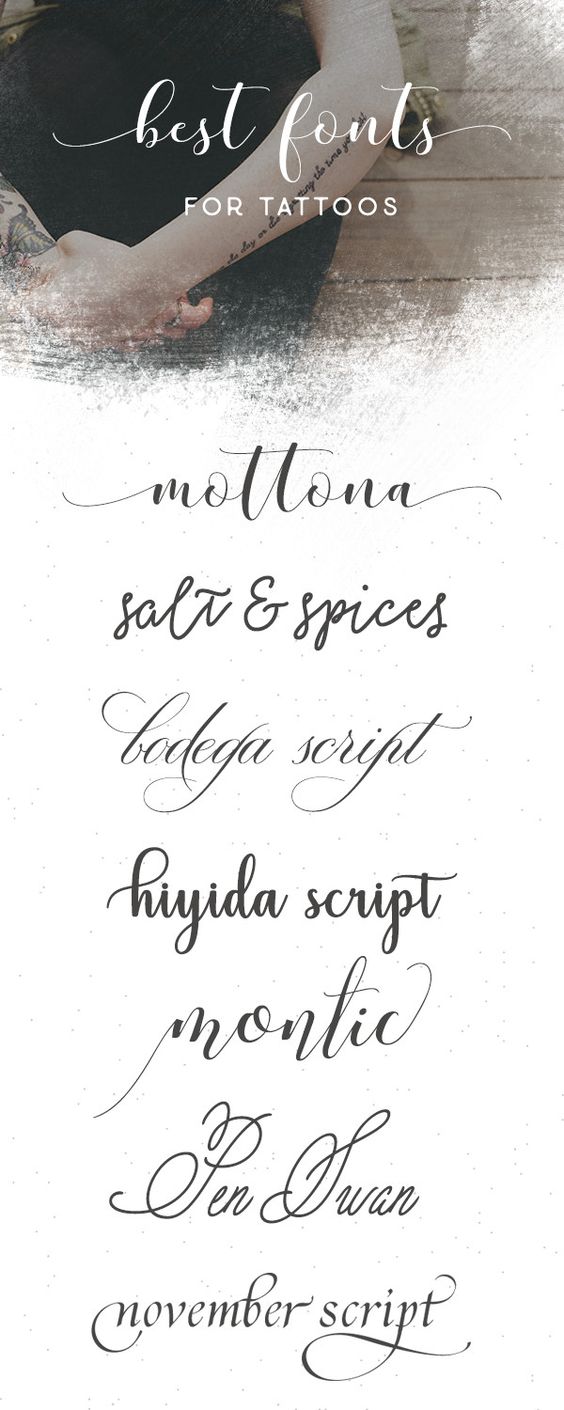 best fonts
FOR TATTOOS
mottona
salt & spices
bodega script
hiyida script
montic
Pen Swan
november script